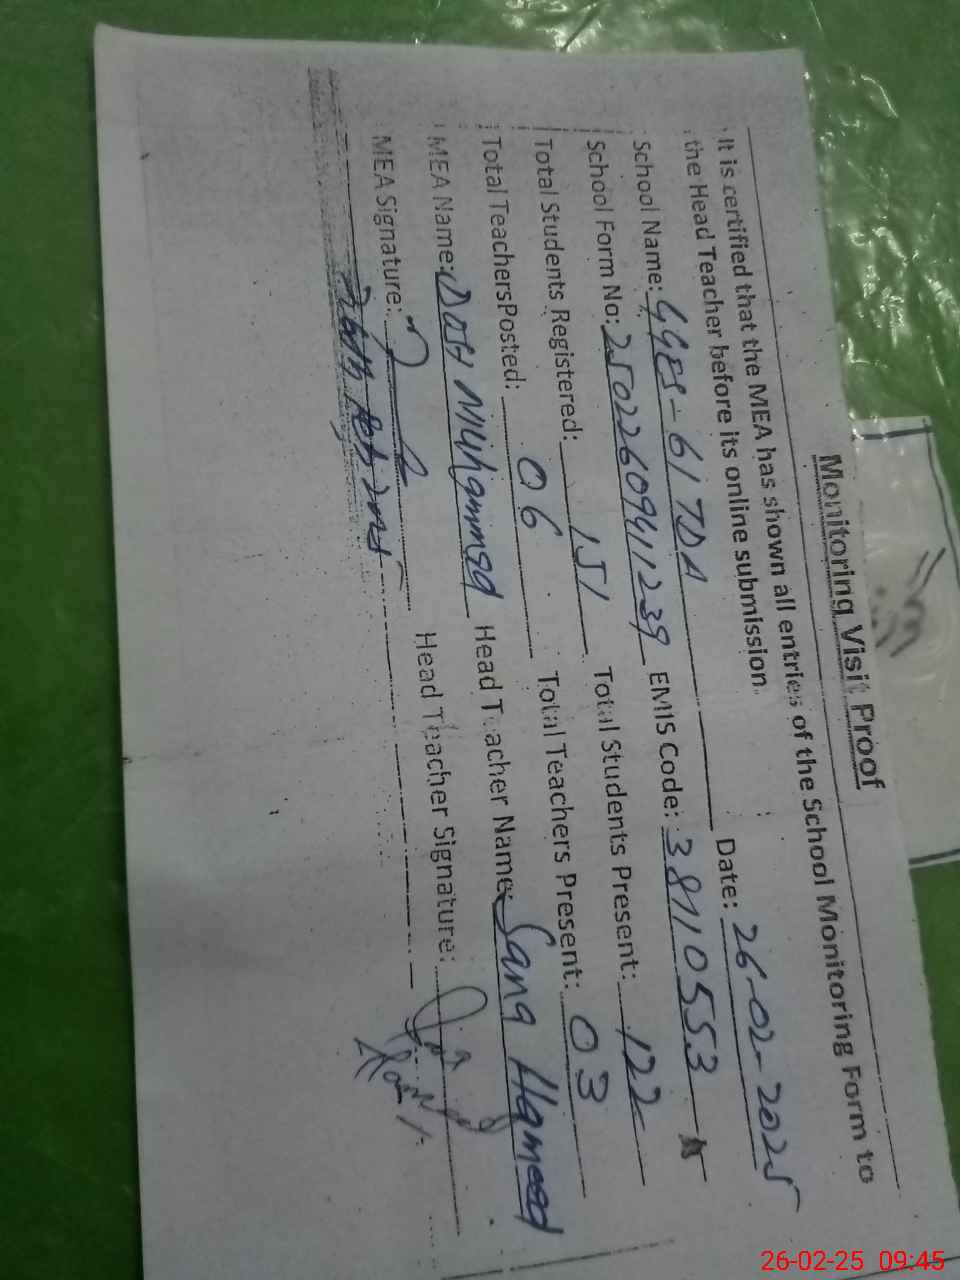 Monitoring Visit Proof
It is certified that the MEA has shown all entries of the School Monitoring Form to
the Head Teacher before its online submission.
Date: 26-02-2025
School Name: GGES-61 TDA
School Form No: 25022609411239 EMIS Code: 38110553
Total Students Registered: 151 Total Students Present: 122
Total Teachers Posted: 06 Total Teachers Present: 03
MEA Name: Dost Muhammad Head Teacher Name: Sana Hameed
MEA Signature: Head Teacher Signature:
26-02-25 09:45